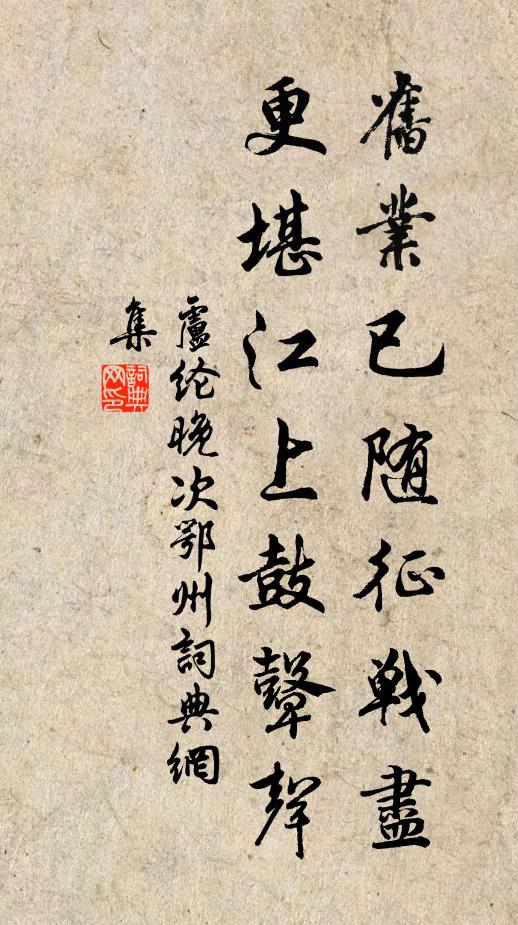 舊業已随征戰盡
更堪江上鼓鼙聲
盧纶晚次鄂州詞典網
集
詞典网印